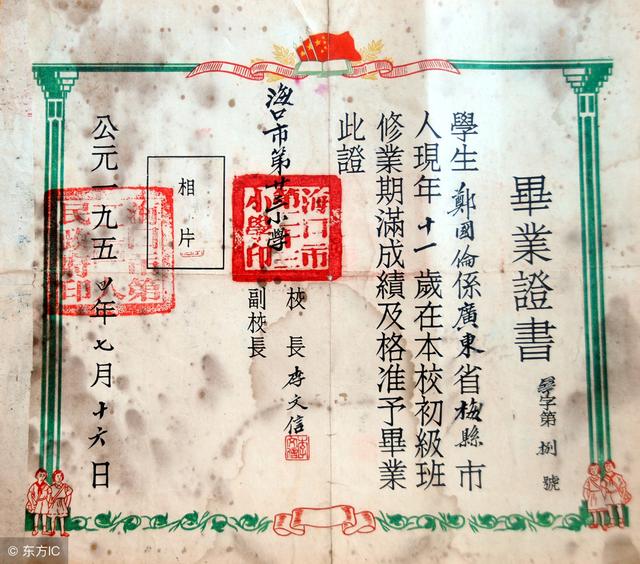 畢業證書
學字第捌號
學生鄭國倫係廣東省梅縣市
人現年十一歲在本校初級班
修業期滿成績及格准予畢業
此證
海口市第廿三小學
海口市
第二十三
小學印
校長李文信
副校長
相片
公元一九五四年七月十六日
© 东方IC